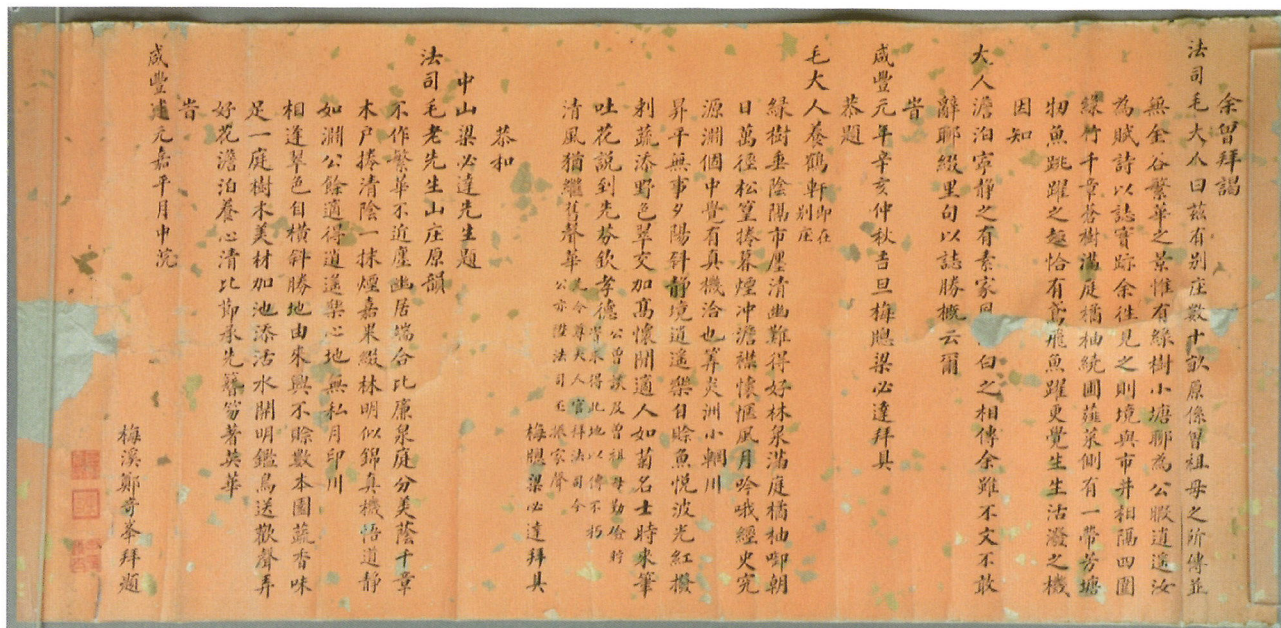 余曾拜謁
法司毛大人曰茲有別庄數十畝原係曾祖母之所傳並
無金谷繁華之景惟有綠樹小塘聊為公暇逍遙汝
為賦詩以誌實跡余往見之則境與市井相隔四圍
綠竹千章蒼樹滿庭橘柚統圃蔬菜側有一帶芳塘
物魚跳躍之趣恰有鳶飛魚躍更覺生生活潑之機
因知
大人澹泊寧靜之有素家 白之相傳余雖不文不敢
辭聊綴里句以誌勝概云爾
旹
咸豐元年辛亥仲秋吉旦梅聰梁必達拜具
恭題
毛大人養鶴軒即在別庄
綠樹垂陰隔市廛清幽難得好林泉滿庭橘柚啣朝
日萬徑松篁捲暮煙冲澹襟懷愜風月吟哦經史究
源淵個中覺有真機洽也筭炎洲小輞川
昇平無事夕陽斜靜境逍遙樂自賒魚悅波光紅撥
剌蔬添野色翠交加高懷閒適人如菊名士時來筆
吐花說到先芬欽孝德公曾談及曾祖母勤儉貯 得此地以傳不朽
清風猶繼舊聲華 令尊大人官拜法司今公亦陞法司 振家聲
梅聰梁必達拜具
恭和
中山梁必達先生題
法司毛老先生山庄原韻
不作繁華不近塵幽居端合比廉泉庭分美蔭千章
木戶捲清陰一抹煙嘉果綴林明似錦真機悟道靜
如淵公餘適得逍遙樂心地無私月印川
相逢翠色自橫斜勝地由來興不賒數本園蔬香味
足一庭樹木美材加池添活水開明鑑鳥送歡聲弄
好花澹泊養心清比節承先簪笏著英華
旹
咸豐建元嘉平月中浣
梅溪鄭奇峯拜題